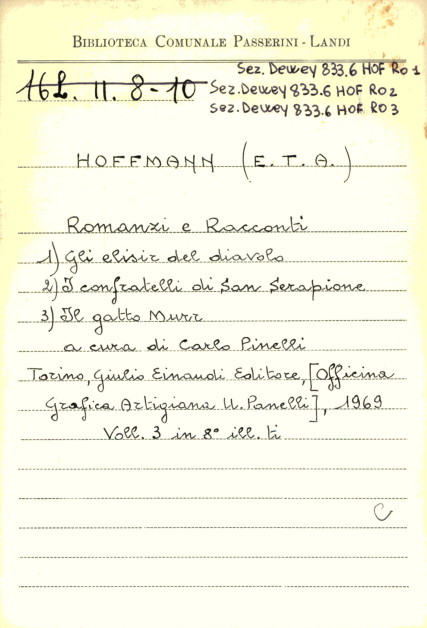 BIBLIOTECA COMUNALE PASSERINI - LANDI
Sez. Dewey 833.6 HOF RO 1
16L. II. 8-10 Sez. Dewey 833.6 HOF RO2
Sez. Dewey 833.6 HOF RO 3
HOFFMANN (E. T. A.)
Romanzi e Racconti
1) Gli elisir del diavolo
2) I confratelli di San Serapione
3) Il gatto Murr
a cura di Carlo Pinelli
Torino, Giulio Einaudi Editore, [Officina
Grafica Artigiana U. Panelli], 1969
Voll. 3 in 8° ill. ti
C